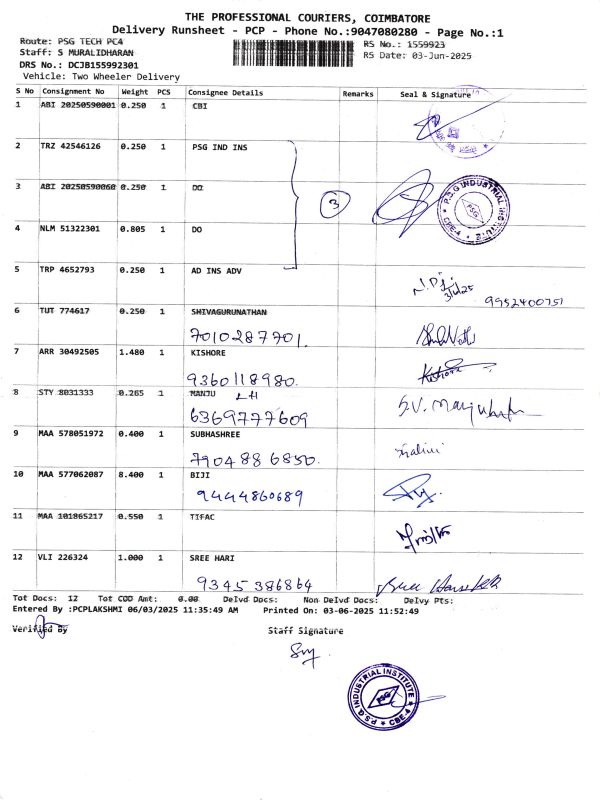 THE PROFESSIONAL COURIERS, COIMBATORE
Delivery Runsheet - PCP - Phone No.:9047080280 - Page No.:1
Route: PSG TECH PC4
RS No.: 1559923
Staff: S MURALIDHARAN
RS Date: 03-Jun-2025
DRS No.: DCJB155992301
Vehicle: Two Wheeler Delivery
S No Consignment No Weight PCS Consignee Details Remarks Seal & Signature
1 ABI 20250590001 0.250 1 CBI
2 TRZ 42546126 0.250 1 PSG IND INS
3 ABI 20250590060 0.250 1 DO
3
P.S.G INDUSTRIAL INSTITUTE
PSG
CBE-4
4 NLM 51322301 0.805 1 DO
5 TRP 4652793 0.250 1 AD INS ADV
9952400751
6 TUT 774617 0.250 1 SHIVAGURUNATHAN
7010287701.
7 ARR 30492505 1.480 1 KISHORE
Kishore
9360118980.
8 STY 8031333 0.265 1 MANJU LH
6369777609
9 MAA 578051972 0.400 1 SUBHASHREE
7904886850.
10 MAA 577062087 8.400 1 BIJI
9444860689
11 MAA 101865217 0.550 1 TIFAC
12 VLI 226324 1.000 1 SREE HARI
9345386864
Tot Docs: 12 Tot COD Amt: 0.00 Delvd Docs: Non Delvd Docs: Delvy Pts:
Entered By :PCPLAKSHMI 06/03/2025 11:35:49 AM Printed On: 03-06-2025 11:52:49
Verified By
Staff Signature
P.S.G INDUSTRIAL INSTITUTE
PSG
CBE-4